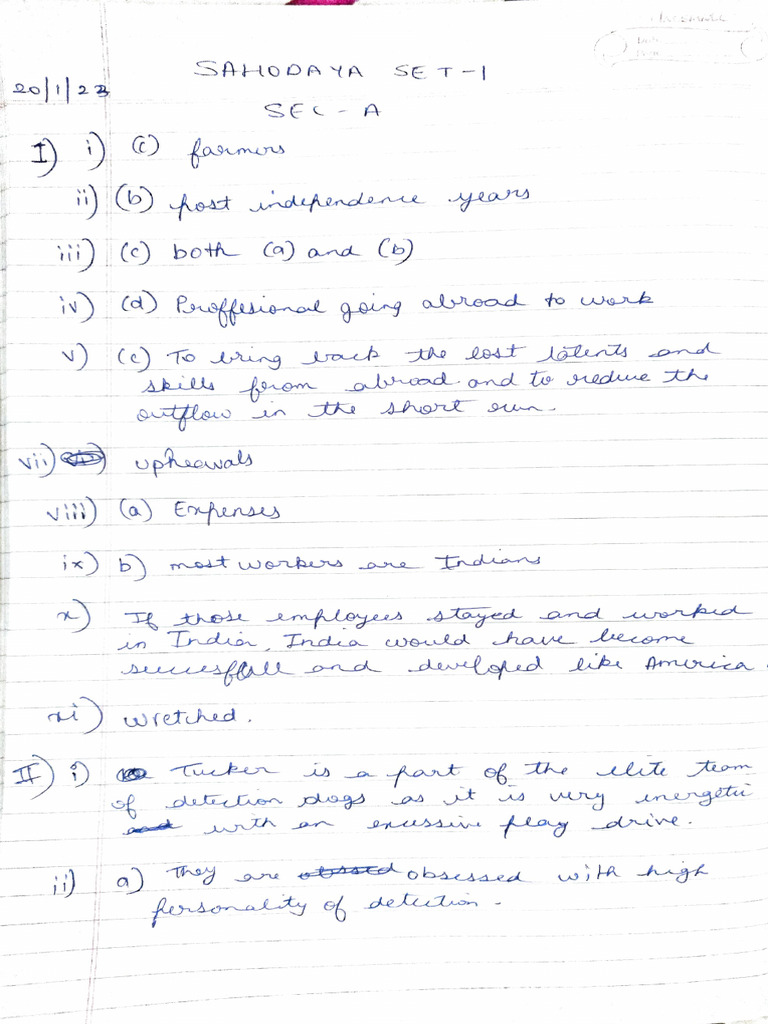 SAHODAYA SET-1
20/1/23
SEC-A
I) i) (c) farmers
ii) (b) post independence years
iii) (c) both (a) and (b)
iv) (d) Proffesional going abroad to work
v) (c) To bring back the lost latents and
skills from abroad and to reduce the
outflow in the short run.
vii) upheavals
viii) (a) Expenses
ix) b) most workers are Indians
x) If those employees stayed and worked
in India, India would have become
succesfull and developed like America.
xi) wretched.
II) i) Tucker is a part of the elite team
of detection dogs as it is very energetic
with an excessive play drive.
ii) a) They are obsessed with high
personality of detection.